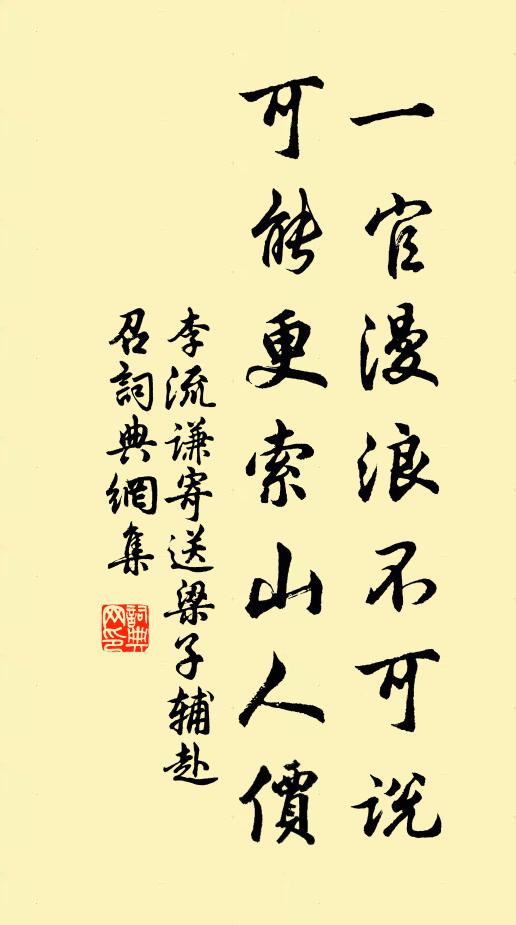 一官漫浪不可説
可能更索山人價
李流謙寄送梁子輔赴
召詞典網集
詞典网印